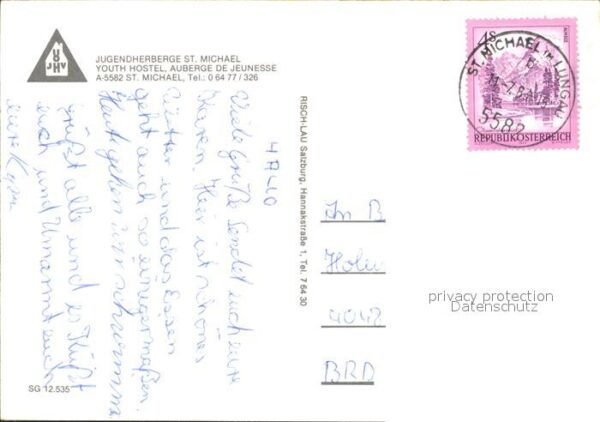 JUGENDHERBERGE ST. MICHAEL
YOUTH HOSTEL, AUBERGE DE JEUNESSE
A-5582 ST. MICHAEL, Tel.: 0 64 77 / 326
HALLO
Viele Grüße Sendet euch eure
Karen. Hier ist schönes
Wetter und das Essen
geht auch so einigermaßen.
Heute gehen wir schwimmen
Grüßt alle und es Küßt
euch und Umarmt euch
eure Karen
SG 12.535
RISCH-LAU Salzburg, Hannakstraße 1, Tel. 7 64 30
4 S
ALMSEE
REPUBLIK ÖSTERREICH
ST. MICHAEL IM LUNGAU
5582
In B
Holw
4042
BRD
privacy protection
Datenschutz